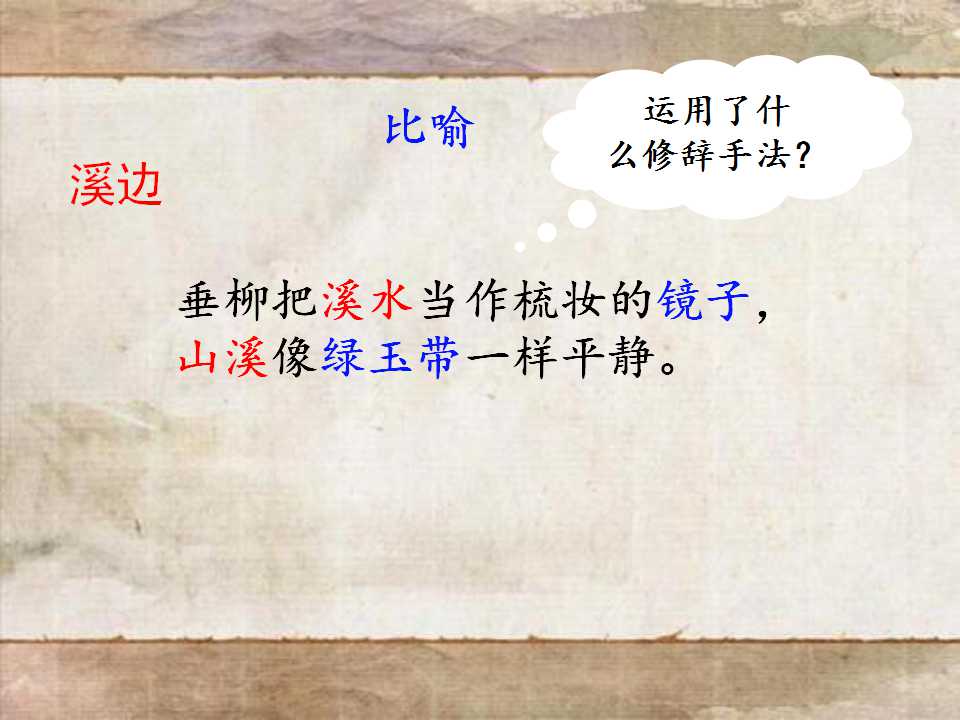 比喻
运用了什
么修辞手法？
溪边
垂柳把溪水当作梳妆的镜子，
山溪像绿玉带一样平静。